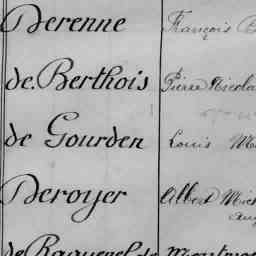 Derenne François
de Berthois Pierre Nicola
de Gourden Louis M
Deroyer Albert Mich
aug
de Raquenel de Montmo